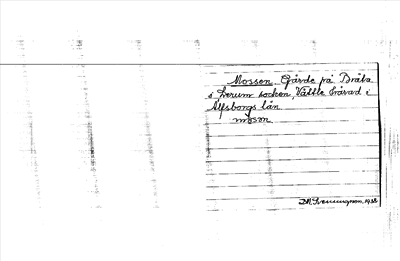 Mossen. Gärde på Bråta
i Lerum socken, Vättle härad i
Älfsborgs län
mosom
1938